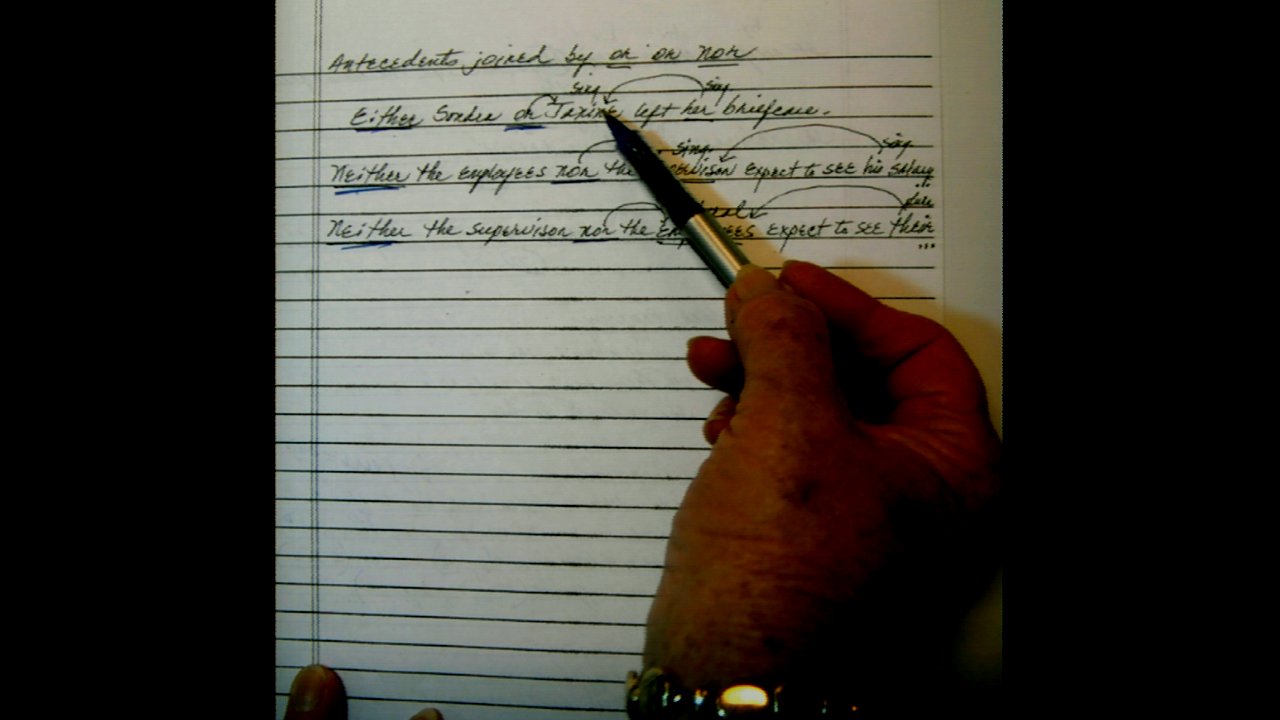 Antecedents joined by or or nor
sing sing
Either Sondra or Janine left her briefcase.
sing. sing
Neither the employees nor the supervisor expect to see his salary
Neither the supervisor nor the employees expect to see their
...